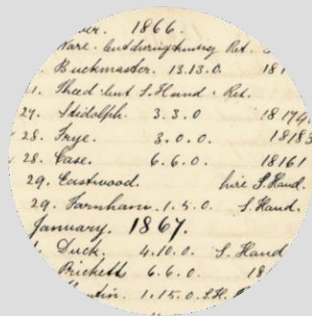 ber. 1866.
Ware. lent during tuning Ret.
Buckmaster. 13.13.0. 181
21. Shed lent S.Hand. Ret.
27. Stidolph. 3.3.0 18174
28. Frye. 3.0.0. 18183
28. Case. 6.6.0. 18161
29. Eastwood. hire S.Hand.
29. Farnham. 1.5.0. S.Hand.
January. 1867.
Duck. 4.10.0. S.Hand
Prickett 6.6.0. 18
1.15.0. S.H.